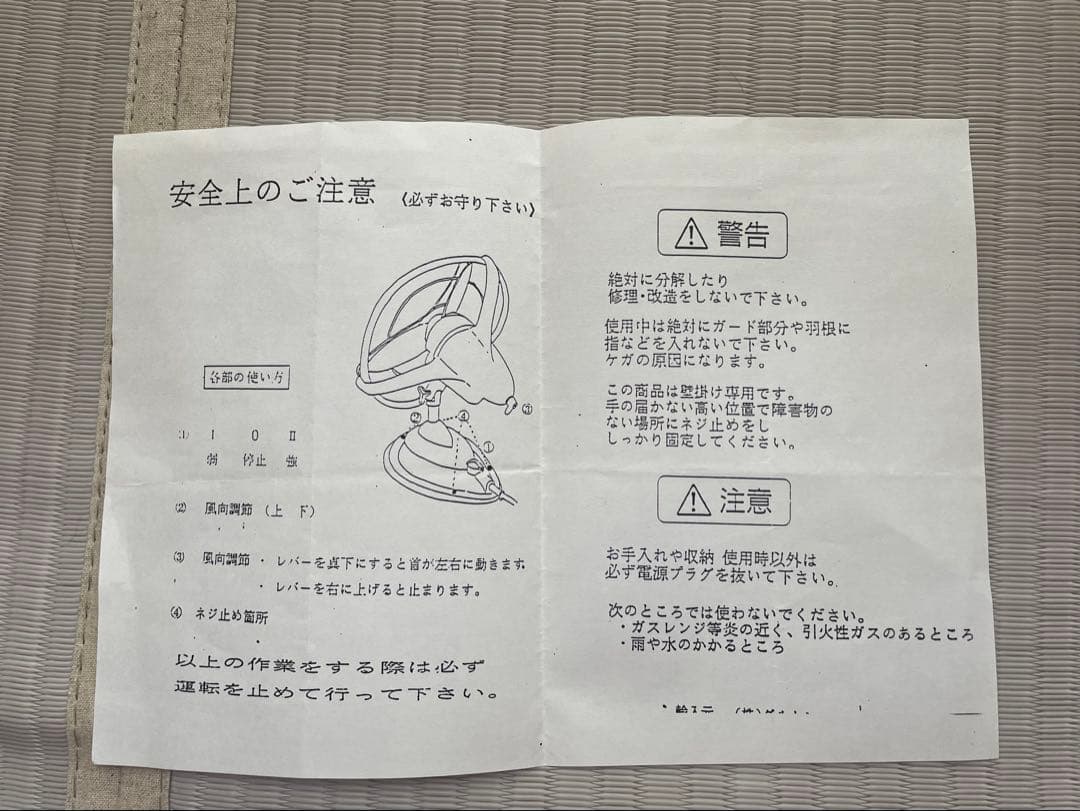 安全上のご注意 《必ずお守り下さい》
各部の使い方
③
②
④
①
① I O II
弱 停止 強
② 風向調節 (上 下)
③ 風向調節 ・ レバーを真下にすると首が左右に動きます
・ レバーを右に上げると止まります。
④ ネジ止め箇所
以上の作業をする際は必ず
運転を止めて行って下さい。
警告
絶対に分解したり
修理・改造をしないで下さい。
使用中は絶対にガード部分や羽根に
指などを入れないで下さい。
ケガの原因になります。
この商品は壁掛け専用です。
手の届かない高い位置で障害物の
ない場所にネジ止めをし
しっかり固定してください。
注意
お手入れや収納 使用時以外は
必ず電源プラグを抜いて下さい。
次のところでは使わないでください。
・ガスレンジ等炎の近く、引火性ガスのあるところ
・雨や水のかかるところ